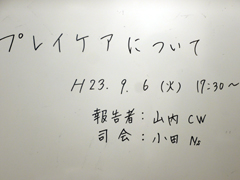 プレイケアについて
H23. 9. 6 (火) 17:30～
報告者：山内 CW
司会：小田 Ns